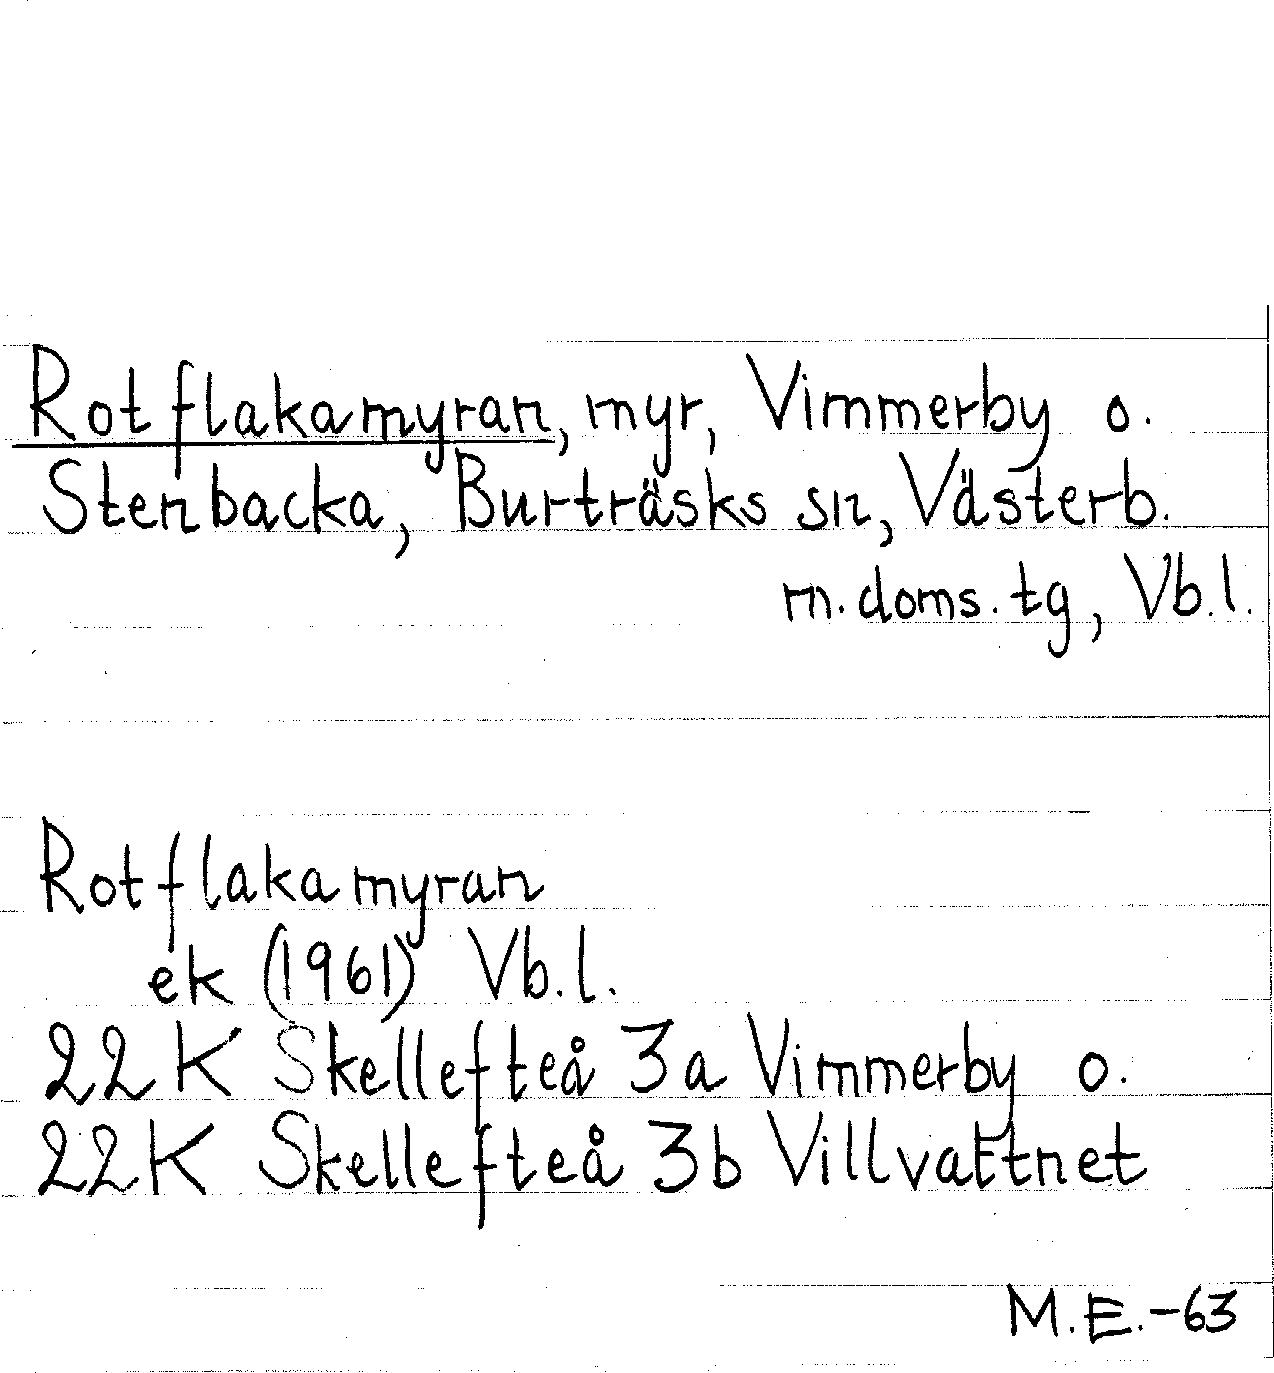 Rotflakamyran, myr, Vimmerby o.
Stenbacka, Burträsks sn, Västerb.
m. doms. tg, Vb.l.
Rotflakamyran
ek (1961) Vb.l.
22K Skellefteå 3a Vimmerby o.
22K Skellefteå 3b Villvattnet
M.E.-63